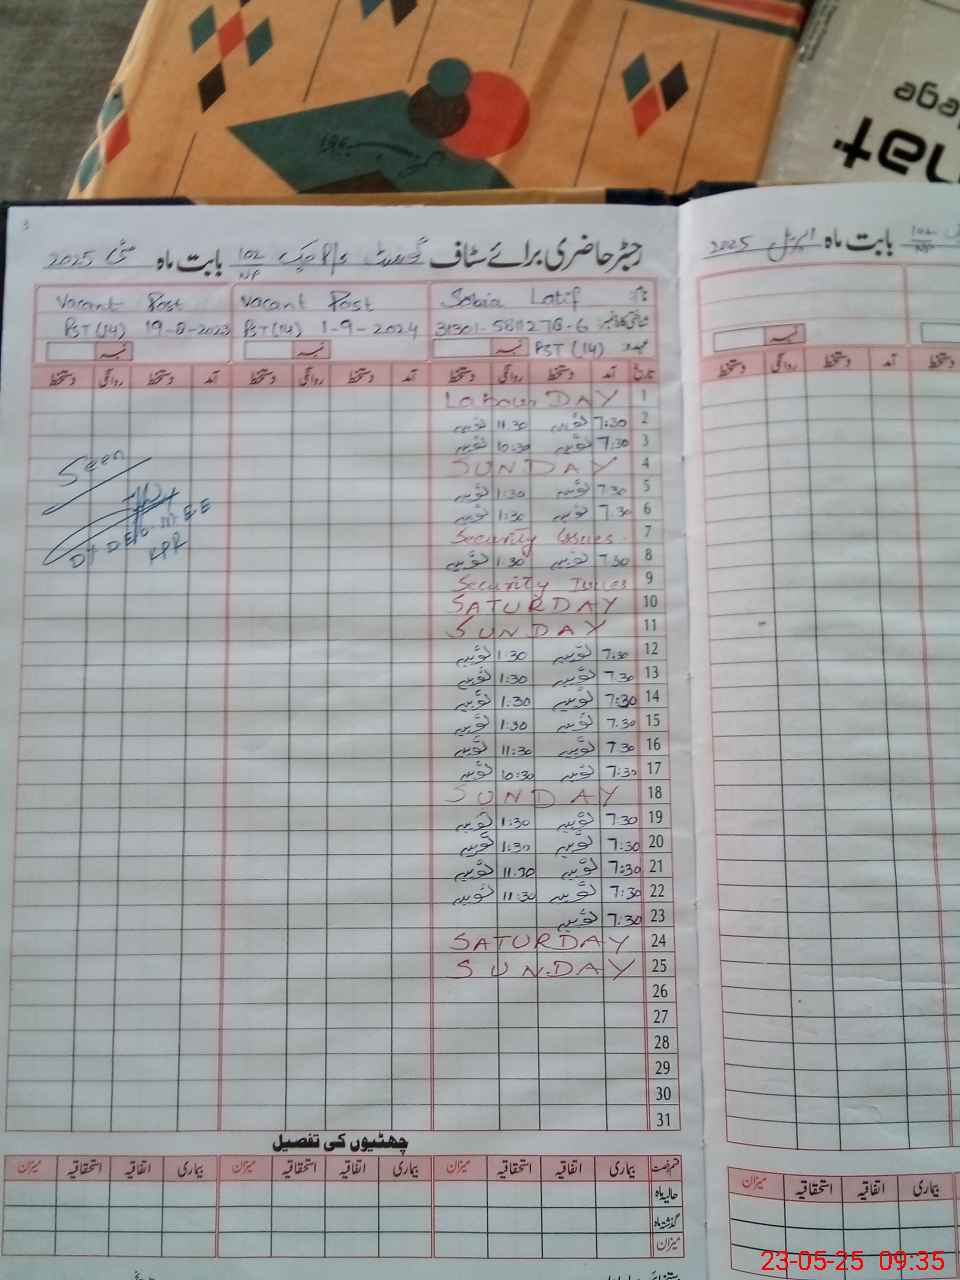 رجسٹر حاضری برائے سٹاف گورنمنٹ 102 NP بابت ماہ مئی 2025
بابت ماہ اپریل 2025
102 NP
نام Sobia Latif
Vacant Post
Vacant Post
شناختی کارڈ نمبر 31301-5811278-6
PST (14) 1-9-2024
PST (14) 19-8-2023
عہدہ PST (14) نمبر
نمبر
نمبر
نمبر
تاریخ آمد دستخط روانگی دستخط آمد دستخط روانگی دستخط آمد دستخط روانگی دستخط
آمد دستخط روانگی دستخط
1 Labour DAY
2 7:30 ثوبیہ 11.30 ثوبیہ
3 7:30 ثوبیہ 10:30 ثوبیہ
4 SUNDAY
5 7.30 ثوبیہ 1:30 ثوبیہ
6 7.30 ثوبیہ 1:30 ثوبیہ
7 Security Issues.
8 7:30 ثوبیہ 1:30 ثوبیہ
9 Security Issues
10 SATURDAY
11 SUNDAY
12 7:30 ثوبیہ 1:30 ثوبیہ
13 7.30 ثوبیہ 1:30 ثوبیہ
14 7:30 ثوبیہ 1.30 ثوبیہ
15 7.30 ثوبیہ 1:30 ثوبیہ
16 7.30 ثوبیہ 11:30 ثوبیہ
17 7:30 ثوبیہ 10:30 ثوبیہ
18 SUNDAY
19 7:30 ثوبیہ 1:30 ثوبیہ
20 7:30 ثوبیہ 1:30 ثوبیہ
21 7:30 ثوبیہ 11.30 ثوبیہ
22 7:30 ثوبیہ 11:30 ثوبیہ
23 7.30 ثوبیہ
24 SATURDAY
25 SUNDAY
26
27
28
29
30
31
Seen
KPR
چھٹیوں کی تفصیل
قسم رخصت بیماری اتفاقیہ استحقاقیہ میزان بیماری اتفاقیہ استحقاقیہ میزان بیماری اتفاقیہ استحقاقیہ میزان
بیماری اتفاقیہ استحقاقیہ میزان
حالیہ ماہ
گذشتہ ماہ
میزان
23-05-25 09:35